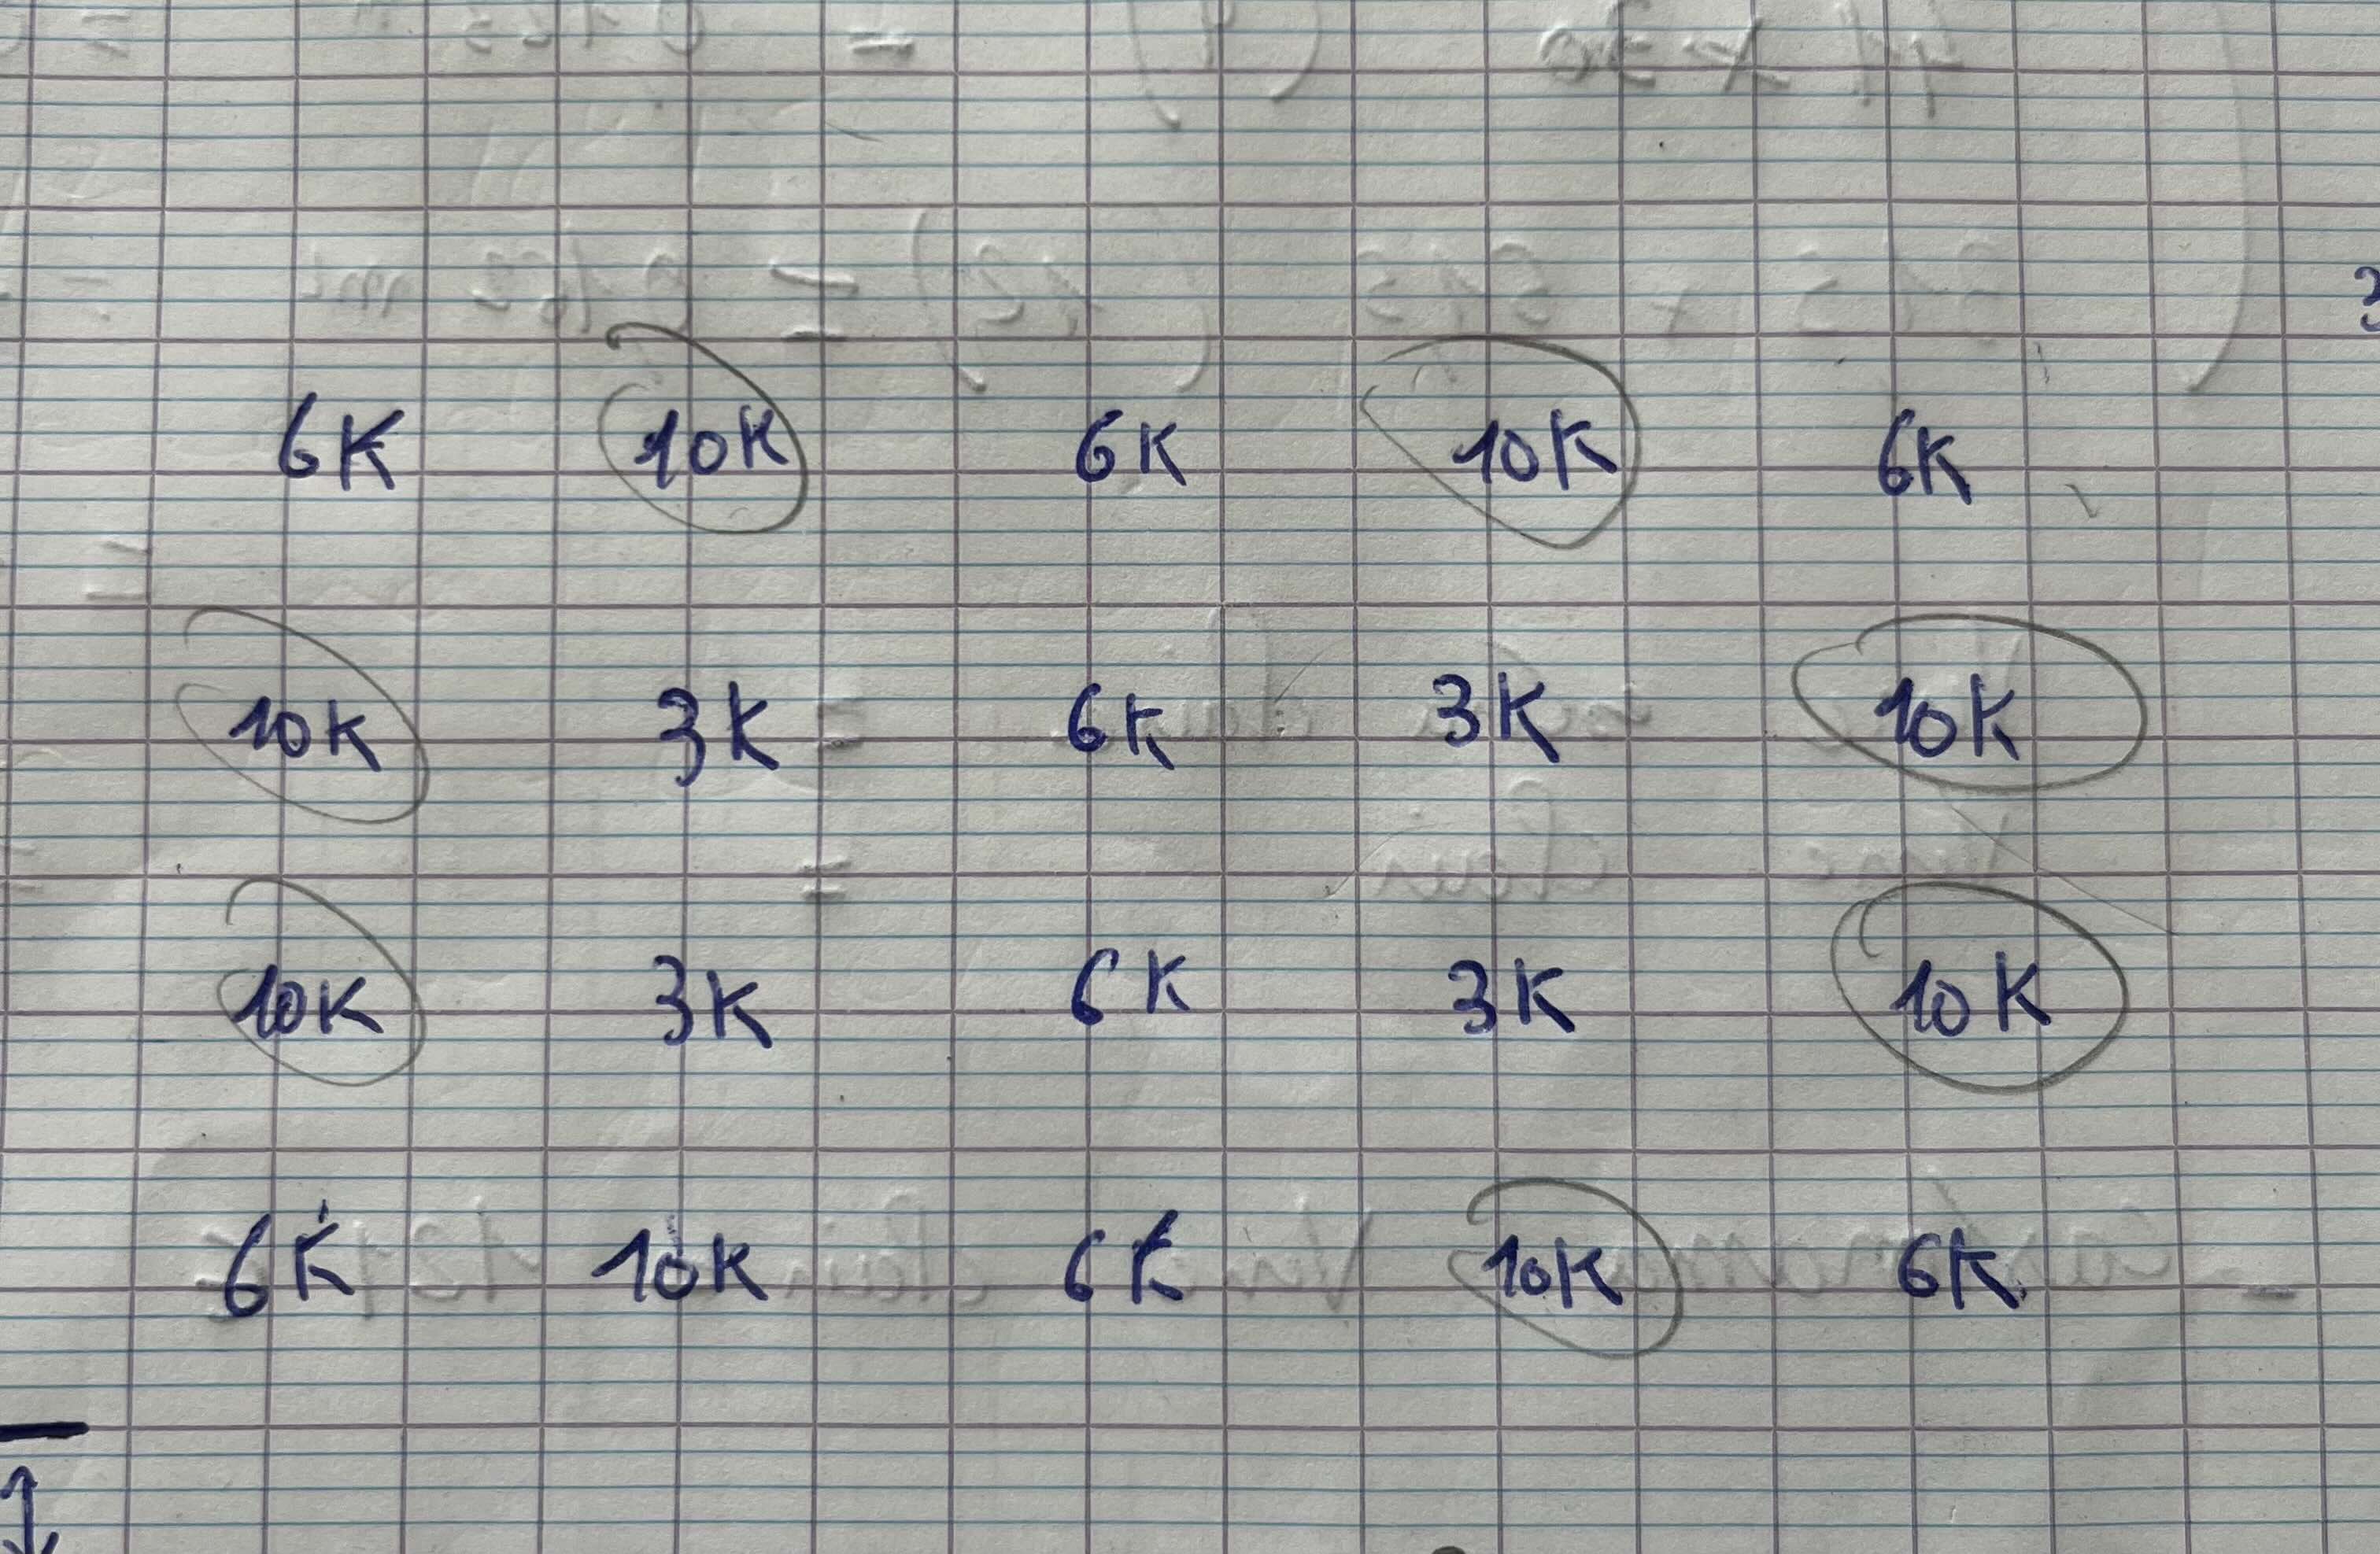 6K 10K 6K 10K 6K
10K 3K 6K 3K 10K
10K 3K 6K 3K 10K
6K 10K 6K 10K 6K